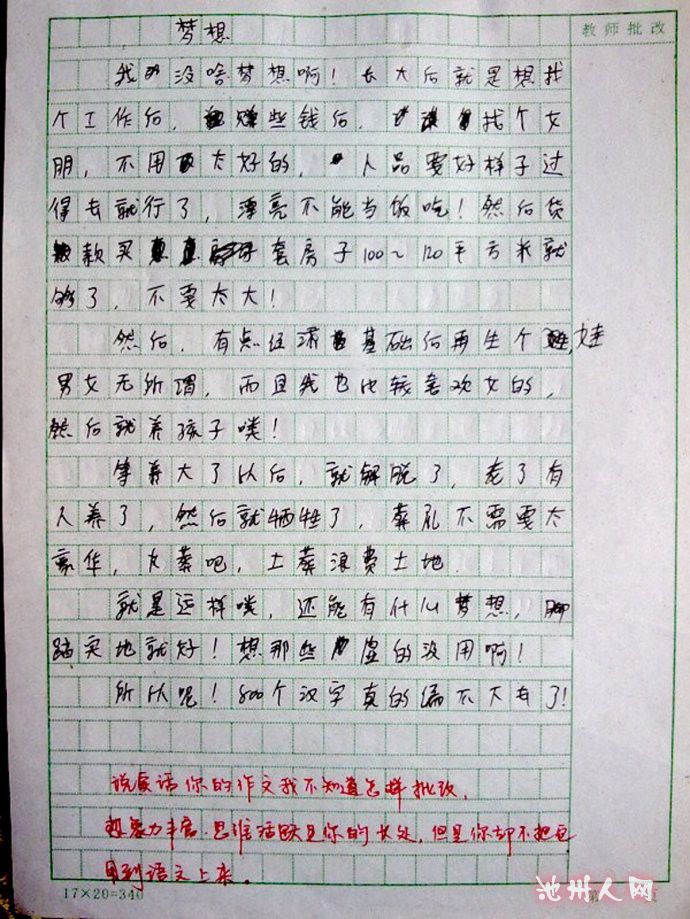 梦想
教师批改
我没啥梦想啊！长大后就是想找
个工作后，赚些钱后，找个女
朋，不用太好的，人品要好样子过
得去就行了，漂亮不能当饭吃！然后货
款买套房子100～120平方米就
够了，不要太大！
然后，有点经济基础后再生个娃，
男女无所谓，而且我也比较喜欢女的，
然后就养孩子喽！
等养大了以后，就解脱了，老了有
人养了，然后就牺牲了，葬礼不需要太
豪华，火葬吧，土葬浪费土地．
就是这样喽，还能有什么梦想，脚
踏实地就好！想那些虚的没用啊！
所以呢！800个汉字真的编不下去了！
说实话你的作文我不知道怎样批改，
想象力丰富．思维活跃是你的长处，但是你却不把它
用到语文上来．
17×20=340
第 页
池州人网